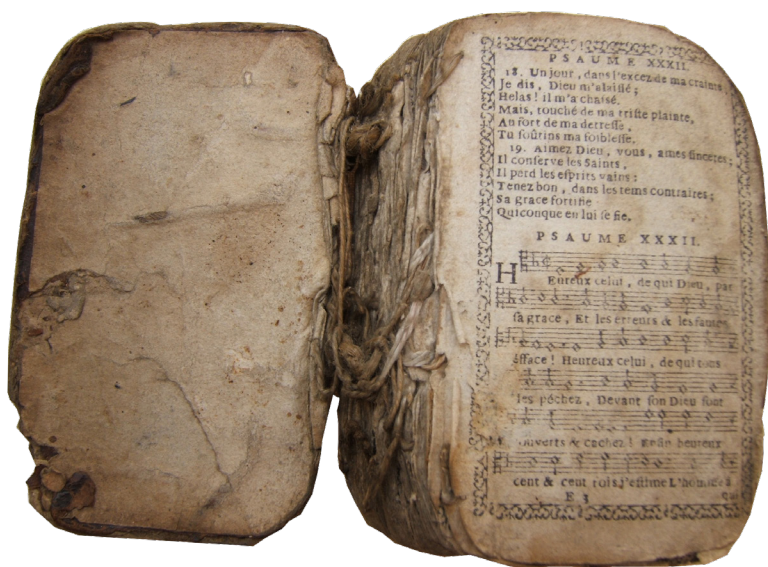 PSAUME XXXII.
18. Un jour, dans l'excez de ma crainte
Je dis, Dieu m'alaissé;
Helas! il m'a chassé.
Mais, touché de ma triste plainte,
Au fort de ma detresse,
Tu soûtins ma foiblesse.
19. Aimez Dieu, vous, ames sinceres;
Il conserve les Saints,
Il perd les esprits vains:
Tenez bon, dans les tems contraires;
Sa grace fortifie
Quiconque en lui se fie.
PSAUME XXXII.
HEureux celui, de qui Dieu, par
sa grace, Et les erreurs & les fautes
efface! Heureux celui, de qui tous
les péchez, Devant son Dieu sont
couverts & cachez! Enfin heureux
cent & cent fois, j'estime L'homme à
E 3 qui